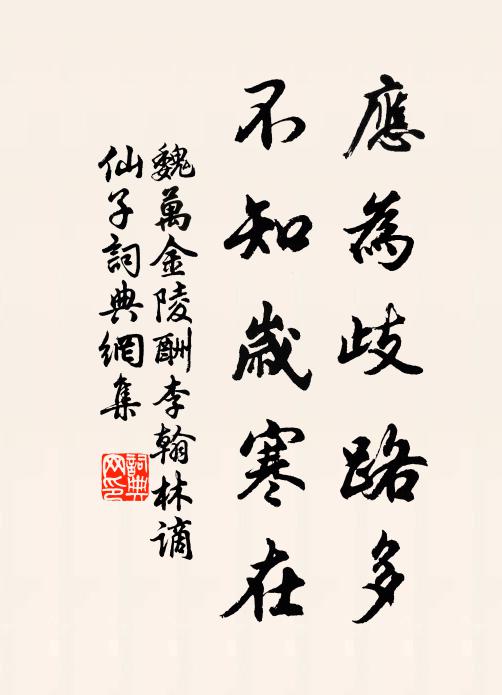 應為歧路多
不知歲寒在
魏萬金陵酬李翰林謫
仙子詞典網集
詞典
网印